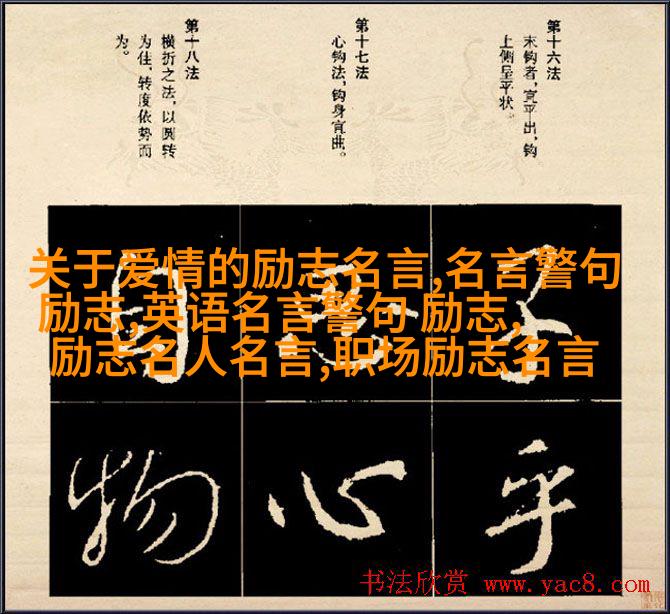 第十六法
末钩者，宜平出，钩
上侧呈平状
第十七法
心钩法，钩身宜曲。
第十八法
横折之法，以圆转
为佳，转度依势而
为。
关于爱情的励志名言,名言警句
励志,英语名言警句 励志,
励志名人名言,职场励志名言
子
乎
心
目
物
书法欣赏 www.yac8.com